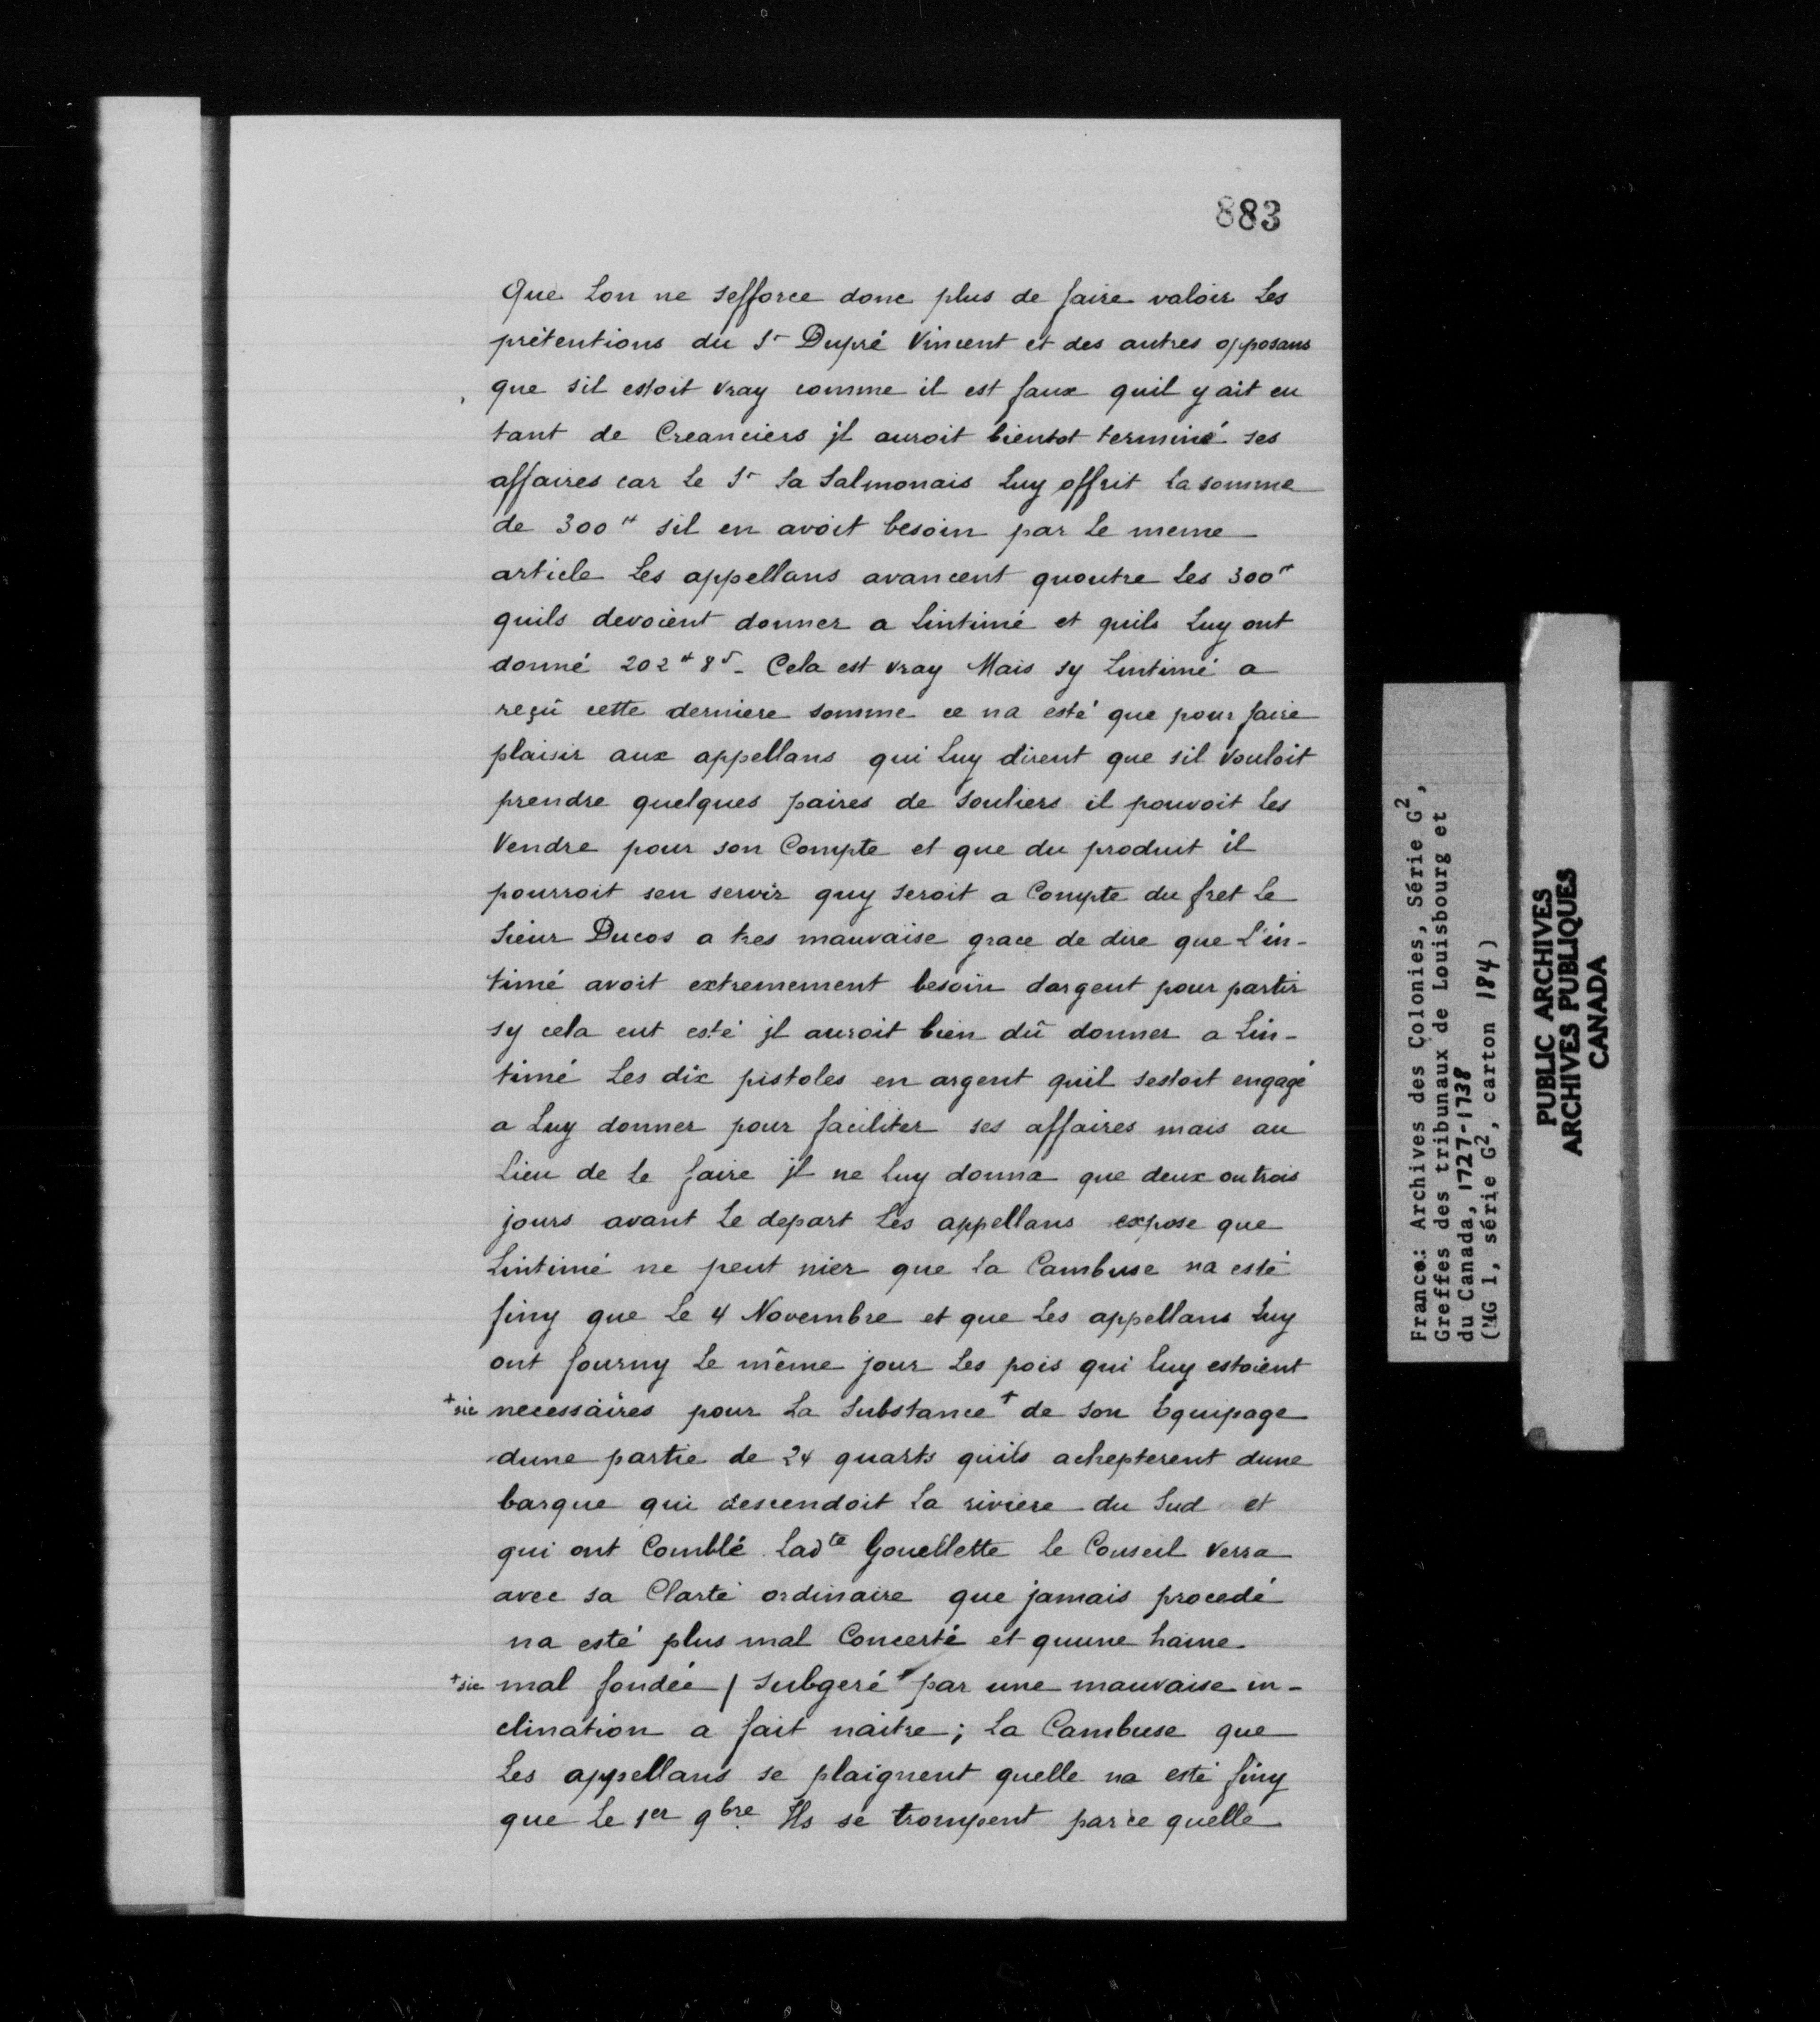 883
Que Lon ne sefforce donc plus de faire valoir Les
prétentions du Sr Dupré Vincent et des autres opposans
que sil estoit vray comme il est faux quil y ait eu
tant de Creanciers jl auroit bientot terminé ses
affaires car Le Sr La Salmonais Luy offrit La somme
de 300 ₶ sil en avoit besoin par Le meme
article Les appellans avancent quoutre Les 300 ₶
quils devoient donner a Lintimé et quils Luy ont
donné 202 ₶ 8 s - Cela est vray Mais sy Lintimé a
reçû cette derniere somme ce na esté que pour faire
plaisir aux appellans qui Luy dirent que sil vouloit
prendre quelques paires de souliers il pouvoit Les
Vendre pour son Compte et que du produit il
pourroit sen servir quy seroit a Compte du fret Le
Sieur Ducos a tres mauvaise grace de dire que L'in-
timé avoit extremement besoin dargent pour partir
sy cela eut esté jl auroit bien dû donner a Lin-
timé Les dix pistoles en argent quil sestoit engagé
a Luy donner pour faciliter ses affaires mais au
Lieu de Le faire jl ne Luy donna que deux ou trois
jours avant Le depart Les appellans expose que
Lintimé ne peut nier que La Cambuse na esté
finy que Le 4 Novembre et que Les appellans Luy
ont fourny Le même jour Les pois qui Luy estoient
+ sic necessaires pour La Substance + de son Equipage
dune partie de 24 quarts quils achepterent dune
barque qui descendoit La riviere du Sud et
qui ont Comblé Ladte Gouellette le Conseil verra
avec sa Clarté ordinaire que jamais procedé
na esté plus mal Concerté et quune haine
+ sic mal fondée / Subgeré + par une mauvaise in-
clination a fait naitre ; La Cambuse que
Les appellans se plaignent quelle na esté finy
que Le 1er 9bre. Ils se trompent parce quelle
France: Archives des Colonies, Série G2,
Greffes des tribunaux de Louisbourg et
du Canada, 1727-1738
(MG 1, série G2, carton 184)
PUBLIC ARCHIVES
ARCHIVES PUBLIQUES
CANADA